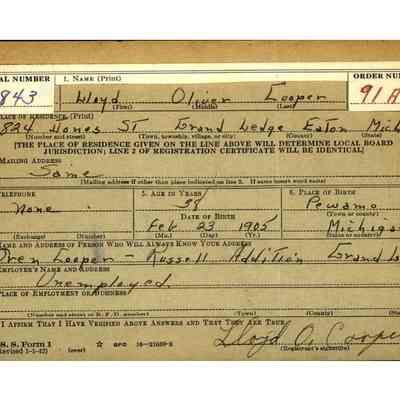 AL NUMBER
1. NAME (Print)
ORDER NU
843
Lloyd Oliver Cooper
91 A
(First) (Middle) (Last)
PLACE OF RESIDENCE (Print)
824 Jones St Grand Ledge Eaton Mich
(Number and street) (Town, township, village, or city) (County) (State)
[THE PLACE OF RESIDENCE GIVEN ON THE LINE ABOVE WILL DETERMINE LOCAL BOARD
JURISDICTION; LINE 2 OF REGISTRATION CERTIFICATE WILL BE IDENTICAL]
MAILING ADDRESS
Same
(Mailing address if other than place indicated on line 2. If same insert word same)
TELEPHONE
5. AGE IN YEARS
6. PLACE OF BIRTH
None
Pewamo
DATE OF BIRTH
(Town or county)
Feb 23 1905
Michiga
(Exchange) (Number)
(Mo.) (Day) (Yr.)
(State or country)
NAME AND ADDRESS OF PERSON WHO WILL ALWAYS KNOW YOUR ADDRESS
Oren Cooper - Russell Addition Grand L
EMPLOYER'S NAME AND ADDRESS
Unemployed
PLACE OF EMPLOYMENT OR BUSINESS
(Number and street or R. F. D. number) (Town) (County) (State)
I AFFIRM THAT I HAVE VERIFIED ABOVE ANSWERS AND THAT THEY ARE TRUE.
S. S. Form 1
Lloyd O. Cooper
(Revised 1-1-42) GPO
(Registrant's signature)